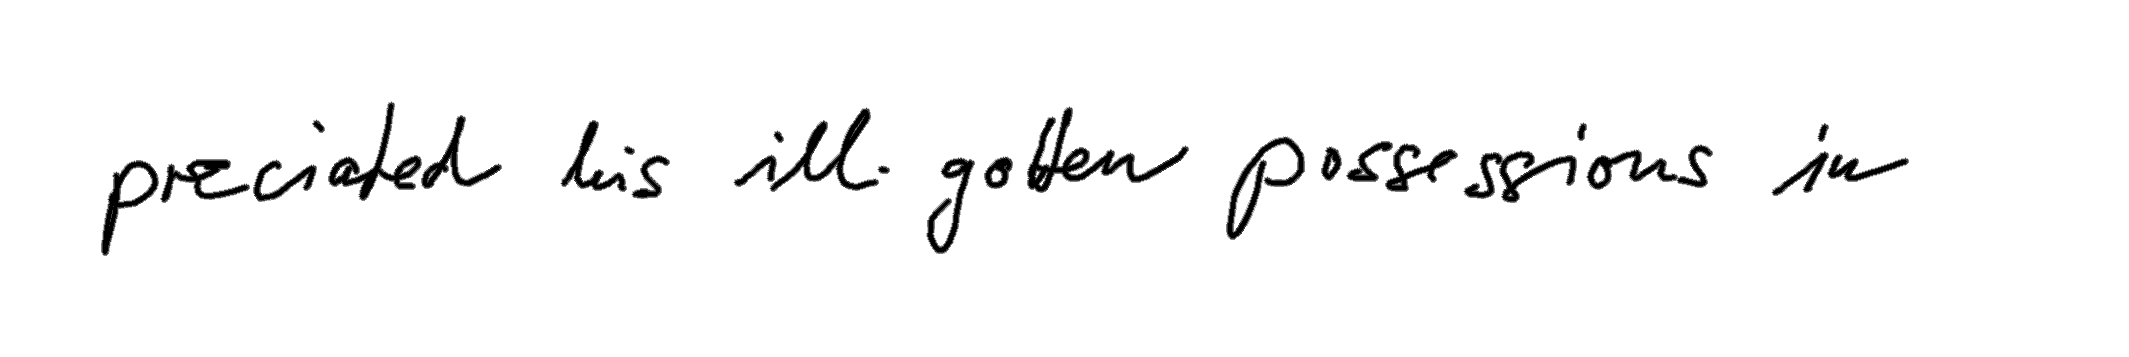 preciated his ill-gotten possessions in